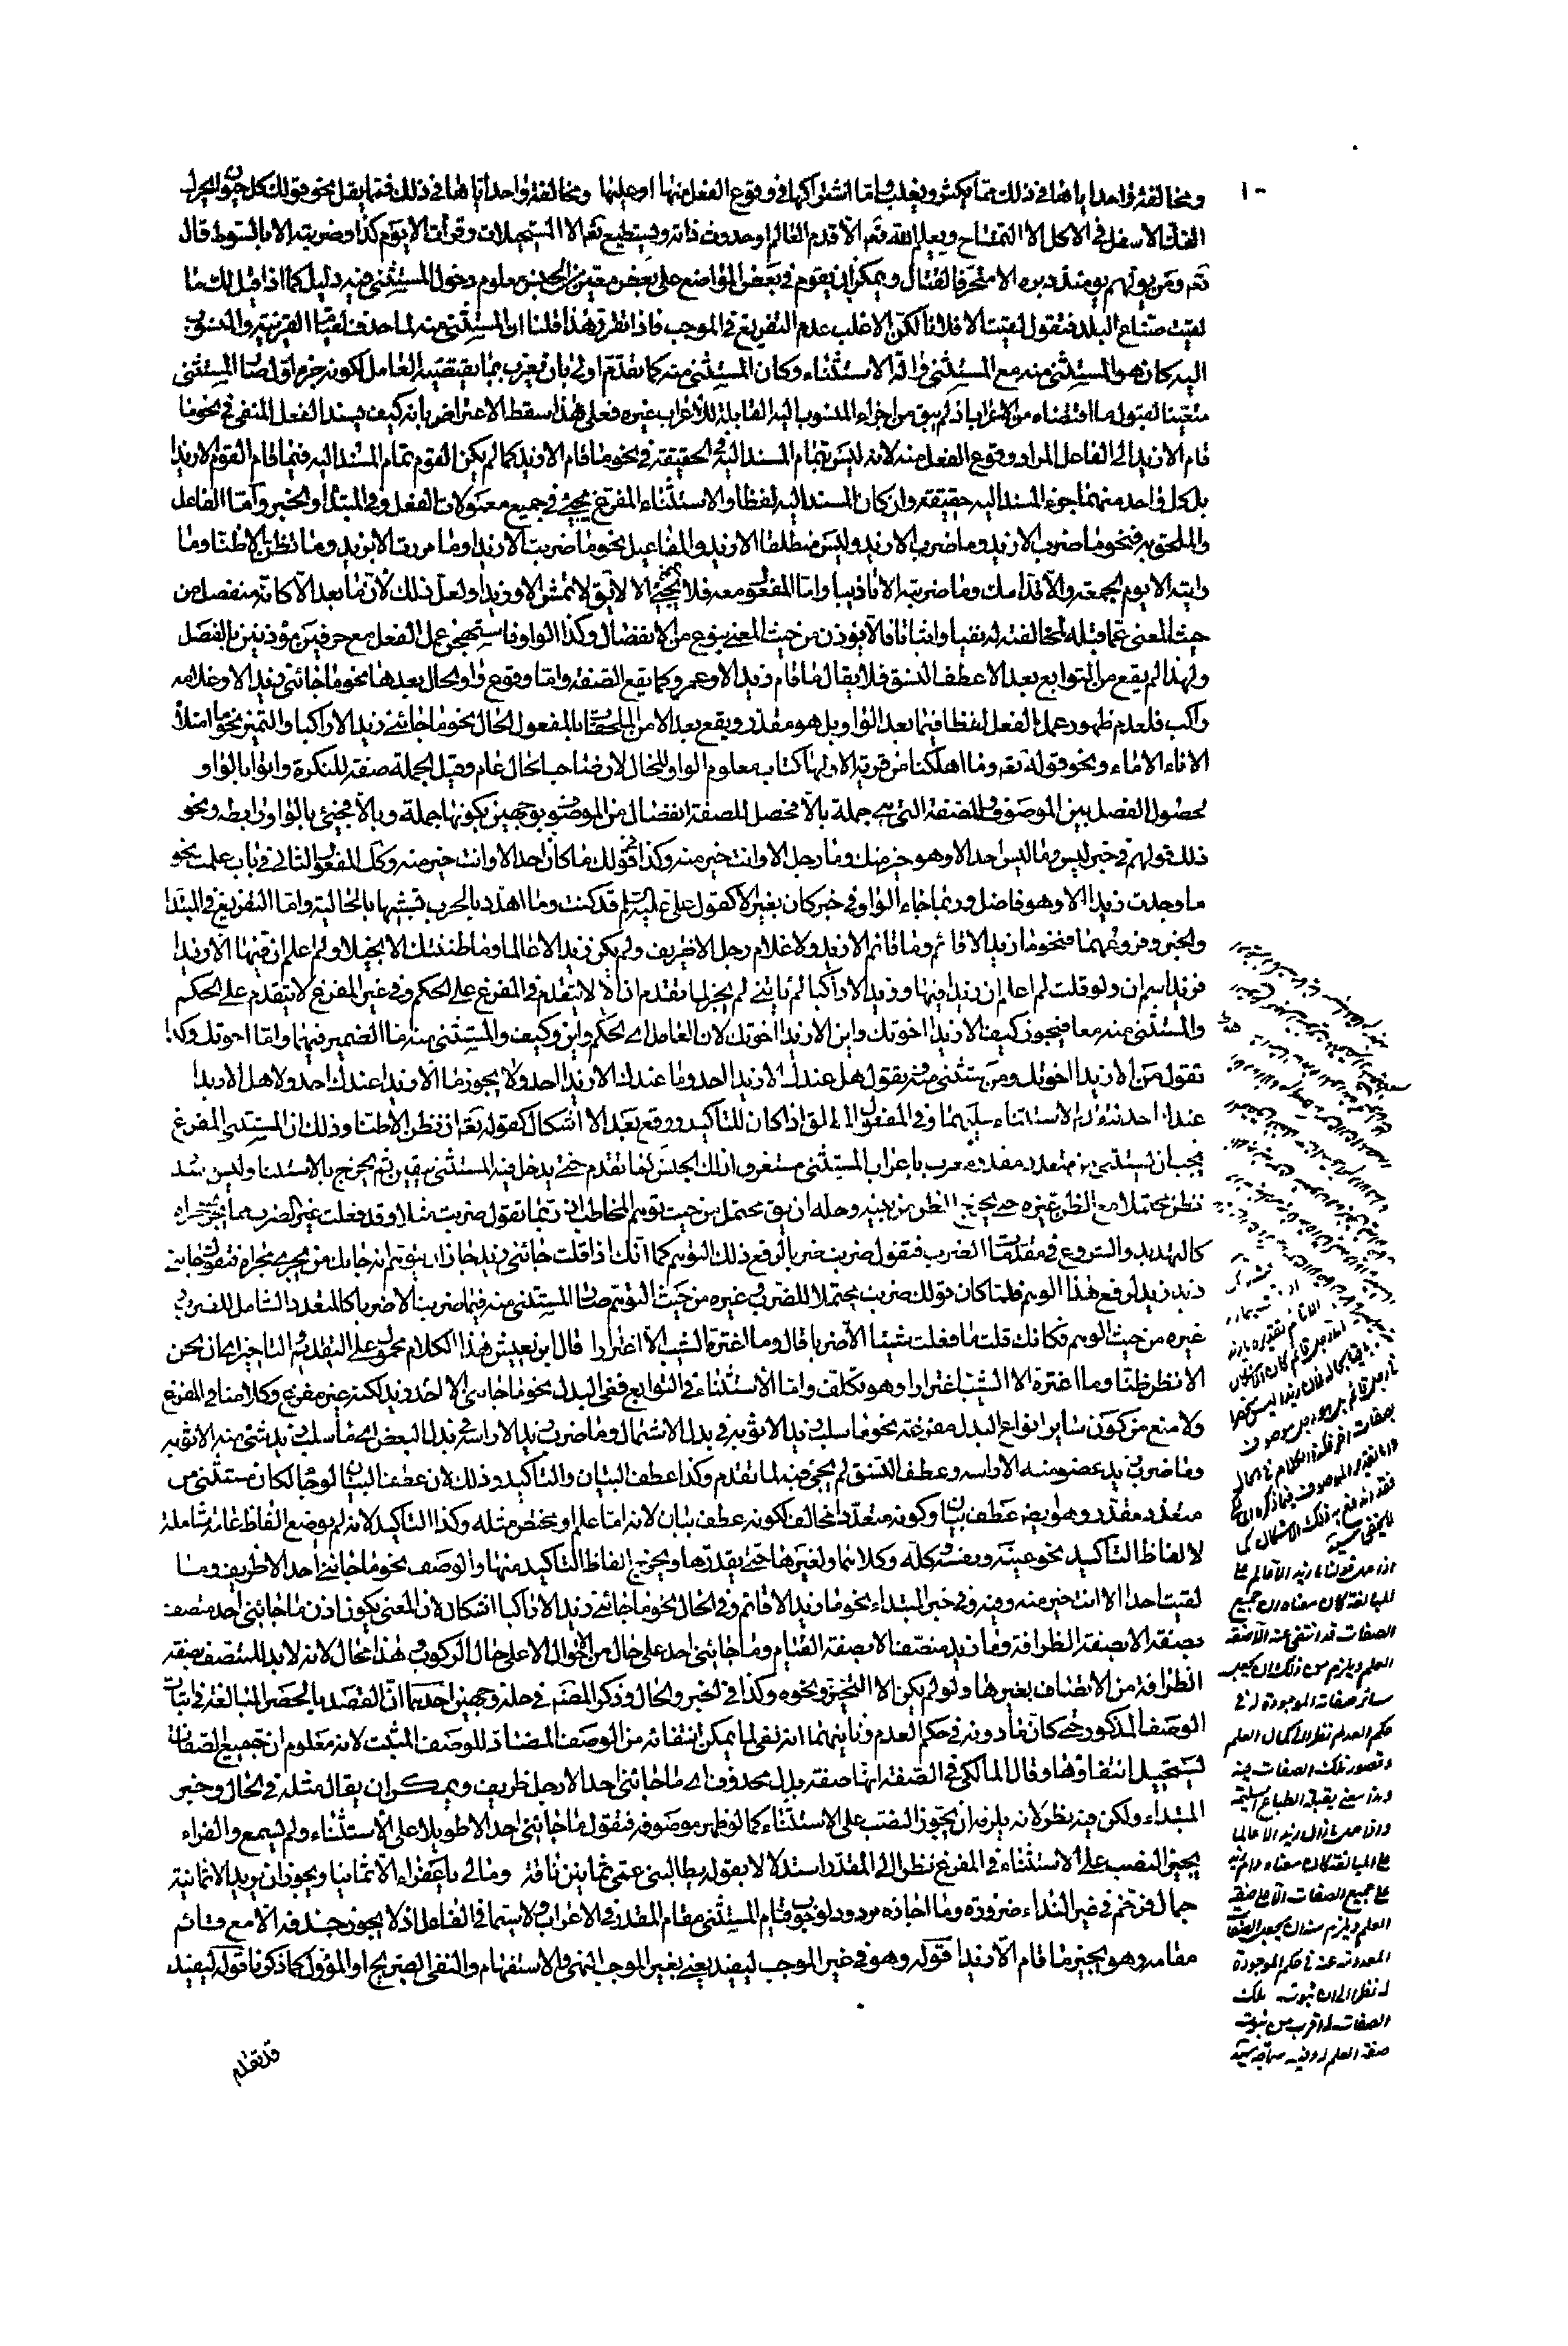 ومخالفة واحد اياها في ذلك مما يكثر ويغلب واما اشتراكها في وقوع الفعل منها او عليها ومخالفة واحد اياها في ذلك فمما يقل نحو قولك كل حيوان يحرك
الفك الاسفل في الاكل الا التمساح ويعلم الله تعه الا قدم العالم او حدوث ذاته ويستطيع تعه الا المستحيلات وقرأت الا يوم كذا وضربته الا بالسوط قال
تعه ومن يولهم يومئذ دبره الا متحرفا لقتال ويمكن ان يقوم في بعض المواضع على بعض معين من الجنس معلوم دخول المستثنى فيه دليل كما اذا قيل لك ما
لقيت صناع البلد فتقول لقيت الا فلانا لكن الاغلب عدم التفريغ في الموجب فاذا تقرر هذا قلنا ان المستثنى منه لما حذف لقيام القرينة والمنسوب
اليه كان هو المستثنى منه مع المستثنى وآلة الاستثناء وكان المستثنى منه كما تقدم اولى بان يعرب بما يقتضيه العامل لكونه جزء اول صار المستثنى
متعينا لقبول ما اقتضاه من الاعراب اذ لم يبق من اجزاء المنسوب اليه القابلة للاعراب غيره فعلى هذا سقط الاعتراض بانه كيف يسند الفعل المنفي في نحو ما
قام الا زيد الى الفاعل المراد وقوع الفعل منه لانه ليس بتمام المسند اليه في الحقيقة في نحو ما قام الا زيد كما لم يكن القوم تمام المسند اليه فيما قام القوم الا زيدا
بل كل واحد منهما جزء المسند اليه حقيقة وان كان المسند اليه لفظا والاستثناء المفرغ يجيئ في جميع معمولات الفعل وفي المبتدا والخبر واما الفاعل
والملحق به فنحو ما ضرب الا زيد وما ضرب الا زيد وليس منطلقا الا زيد والمفاعيل نحو ما ضربت الا زيدا وما مررت الا بزيد وما نظن الا ظنا وما
رايته الا يوم الجمعة والا قدامك وما ضربته الا تاديبا واما المفعول معه فلا يجيئ الا لا يق لا تمش الا وزيدا ولعل ذلك لان ما بعد الا كانه منفصل من
حيث المعنى عما قبله لمخالفته له نفيا واثباتا فالا يؤذن من حيث المعنى بنوع من الانفصال وكذا الواو فاستهجن عمل الفعل مع حرفين مؤذنين بالفصل
ولهذا لم يقع من التوابع بعد الا عطف النسق فلا يقال ما قام زيد الا وعمرو كما يقع الصفة واما وقوع واو الحال بعدها نحو ما جاءني زيد الا وغلامه
راكب فلعدم ظهور عمل الفعل لفظا فيما بعد الواو بل هو مقدر ويقع بعد الا من الملحقات بالمفعول الحال نحو ما جاءني زيد الا راكبا والتميز نحو ما امتلأ
الاناء الا ماء ونحو قوله تعه وما اهلكنا من قرية الا ولها كتاب معلوم الواو للحال لان صاحب الحال عام وقيل الجملة صفة للنكرة واتوا بالواو
لحصول الفصل بين الموصوف والصفة التي هي جملة بالا فحصل للصفة انفصال من الموصوف بوجهين بكونها جملة وبالا فجيئ بالواو رابطه ونحو
ذلك قولهم في خبر ليس وما ليس احد الا وهو خير منك وما رجل الا وانت خير منه وكذا قولك ما كان احد الا وانت خير منه وكل المفعول الثاني في باب علمت نحو
ما وجدت زيدا الا وهو فاضل وربما جاء الواو في خبر كان بغير الا كقول علي عليه السلم قد كنت وما اهدد بالحرب تشبيها بالحالية واما التفريغ في المبتدا
والخبر وفروعهما فنحو ما زيد الا قائم وما قائم الا زيد ولا غلام رجل الا ظريف ولم يكن زيد الا عالما وما ظننتك الا بخيلا ولم اعلم ان فيها الا زيدا
فزيدا اسم ان ولو قلت لم اعلم ان زيدا فيها وزيد الا راكبا لم ياتني لم يجز لما تقدم ان الا لا يتقدم في المفرغ على الحكم وفي غير المفرغ لا يتقدم على الحكم
والمستثنى منه معا فيجوز كيف الا زيدا اخوتك واين الا زيدا اخوتك لان العامل اي الحكم اين وكيف والمستثنى منه ما الضمير فيهما واما اخوتك وكذا
تقول من الا زيدا اخوتك ومن يستثنى منه يقول هل عندك الا زيدا احد وما عندك الا زيدا احد ولا يجوز ما الا زيدا عندك احد ولا هل الا زيدا
عندك احد لتقدم الاستثناء عليهما وفي المفعول المطلق اذا كان للتاكيد ووقع بعد الا اشكال كقوله تعه ان نظن الا ظنا وذلك ان المستثنى المفرغ
يجب ان يستثنى من متعدد مقدر معرب باعراب المستثنى مستغرق لذلك الجنس لما تقدم حتى يدخل فيه المستثنى بيقين ثم يخرج بالاستثناء وليس مصدر
نظن محتملا مع الظن غيره حتى يخرج الظن من بينه وحله ان يق محتمل من حيث توهم المخاطب اذ ربما تقول ضربت مثلا وقد فعلت غير الضرب مما يجري مجراه
كالتهديد والشروع في مقدمات الضرب فتقول ضربت ضربا لرفع ذلك التوهم كما انك اذا قلت جائني زيد جاز ان يتوهم انه جاءك من يجري مجراه فتقول جاءني
زيد زيد لرفع هذا الوهم فلما كان قولك ضربت محتملا للضرب وغيره من حيث التوهم صار المستثنى منه فيما ضربت الا ضربا كالمتعدد الشامل للضرب و
غيره من حيث الوهم فكانك قلت ما فعلت شيئا الا ضربا قال وما اغتره الشيب الا اغترارا قال ابن يعيش هذا الكلام محمول على التقديم والتاخير اي ان نحن
الا نظن ظنا وما اغتره الا الشيب اغترارا وهو تكلف واما الاستثناء في التوابع ففي البدل نحو ما جاءني الا احد زيد لكنه غير مفرغ وكلامنا في المفرغ
ولا منع من كون ساير انواع البدل مفرغة نحو ما سلب زيد الا ثوبه في بدل الاشتمال وما ضرب زيد الا راسه في بدل البعض اي ما سلب زيد شئ منه الا ثوبه
وما ضرب زيد عضو منه الا راسه وعطف النسق لم يجئ فيه لما تقدم وكذا عطف البيان والتاكيد وذلك لان عطف البيان لو جاء لكان مستثنى من
متعدد مقدر وهو ايضه عطف بيان وكونه متعددا مخالف لكونه عطف بيان لانه اما علم او مختص مثله وكذا التاكيد لانه لم يوضع الفاظ عامة شاملة
لالفاظ التاكيد نحو عينه ونفسه وكله وكلاهما ولغيرها حتى يقدرها ويخرج الفاظ التاكيد منها والوصف نحو ما جاءني احد الا ظريف وما
لقيت احدا الا انت خير منه وفيه وفي خبر المبتداء نحو ما زيد الا قائم وفي الحال نحو ما جائني زيد الا راكبا اشكال لان المعنى يكون اذن ما جائني احد متصف
بصفة الا بصفة الظرافة وما زيد متصفا الا بصفة القيام وما جائني احد على حال من الاحوال الا على حال الركوب وهذا محال لانه لا بد للمتصف بصفة
الظرافة من الاتصاف بغيرها ولو لم يكن الا التحيز ونحوه وكذا في الخبر والحال وذكر المصنف في حله وجهين احدهما ان القصد بالحصر المبالغة في اثبات
الوصف المذكور حتى كان ما دونه في حكم العدم وثانيهما انه نفي لما يمكن انتفائه من الوصف المضاد للوصف المثبت لانه معلوم ان جميع الصفات
يستحيل انتفاؤها وقال المالكي في الصفة انها صفة بدل محذوف اي ما جائني احد الا رجل ظريف ويمكن ان يقال مثله في الحال وخبر
المبتداء ولكن فيه نظر لانه يلزمه ان يجوز النصب على الاستثناء كما لو ظهر موصوفه فتقول ما جائني احد الا طويلا على الاستثناء ولم يسمع والفراء
يجيز النصب على الاستثناء في المفرغ نظرا الى المقدر استدلالا بقوله يطالبني عمي ثمانين ناقة ومالي يا عفراء الا ثمانيا ويجوز ان يريد الا ثمانية
جمال فرخم في غير النداء ضرورة وما اجازه مردود لوجوب قيام المستثنى مقام المقدر في الاعراب ولا سيما في الفاعل اذ لا يجوز حذفه الا مع قائم
مقامه وهو يجيز ما قام الا زيدا قوله وهو في غير الموجب ليفيد يعني بغير الموجب النهي والاستفهام والنفي الصريح او المؤول كما ذكرنا قوله ليفيد
قد تقدم
اذا حمل قولنا ما زيد الا عالم على
المبالغة كان معناه ان جميع
الصفات قد انتفى عنه الا صفة
العلم ويلزم من ذلك ان يجعل
سائر صفات الموجودة له في
حكم العدم نظرا الى كمال العلم
وقصور تلك الصفات فيه
وهذا معنى يقبله الطباع السليمة
واذا حمل ما زال زيد الا عالما
على المبالغة كان معناه دام زيد
على جميع الصفات الا على صفة
العلم ويلزم منه ان يجعل الصفات
المعدومة عنه في حكم الموجودة
له نظرا الى ان ثبوت تلك
الصفات له اقرب من ثبوت
صفة العلم له وفيه سماجة بينة